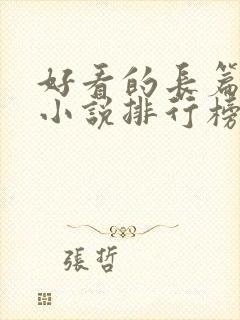 好看的長篇
小說排行榜
張哲